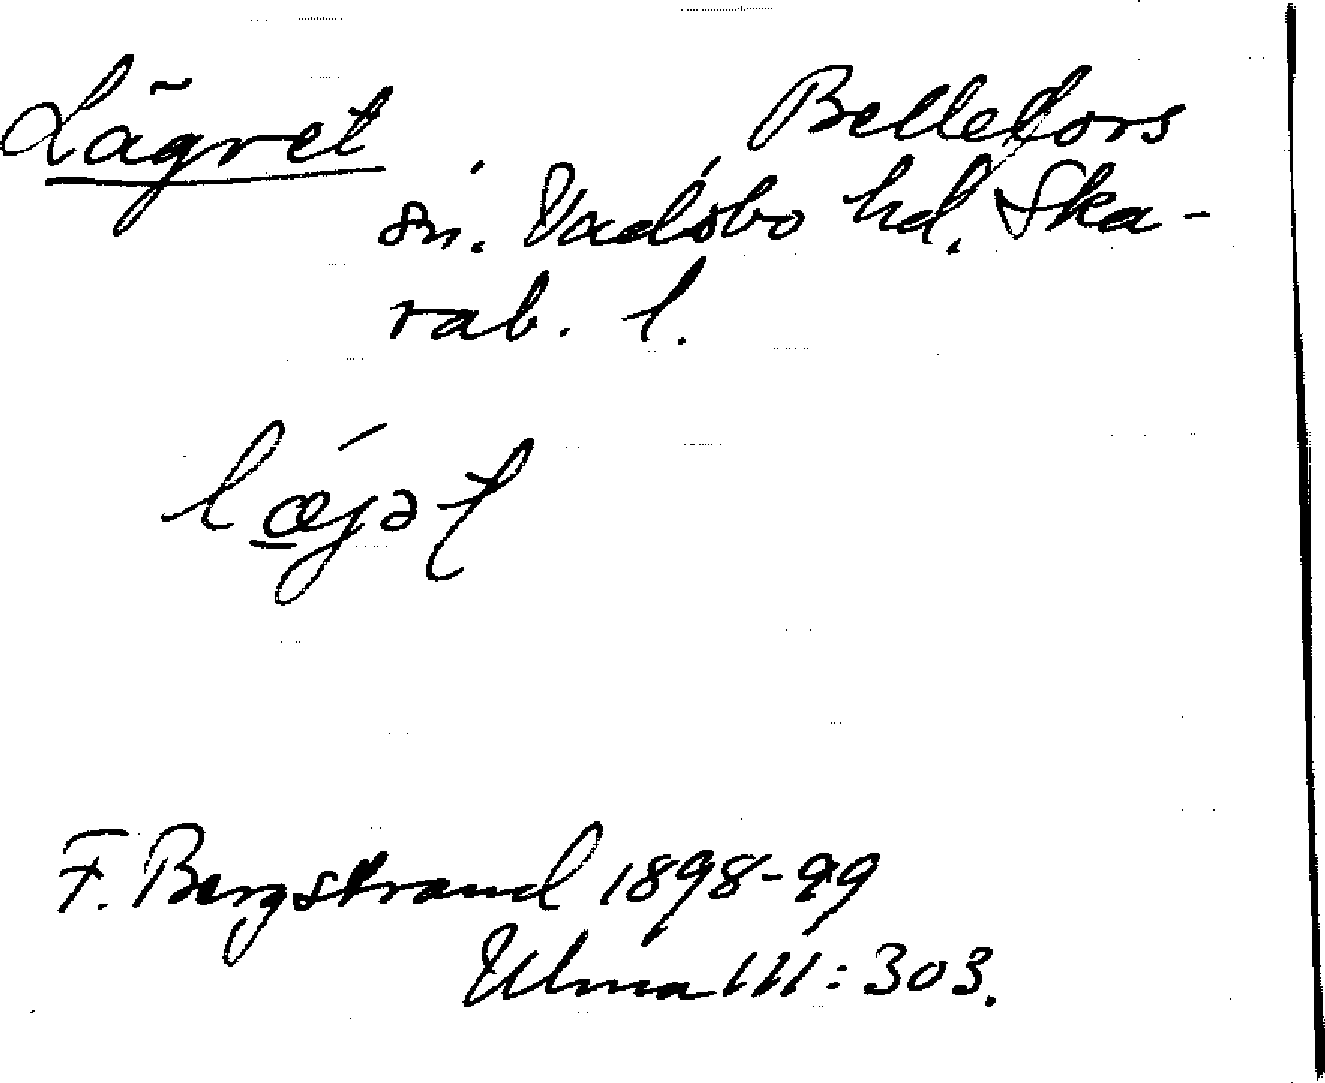 Lägret Bellefors
sn. Vadsbo hd. Ska-
rab. l.
lœ̲́jət
F. Bergstrand 1898-99
Ulma 111:303.